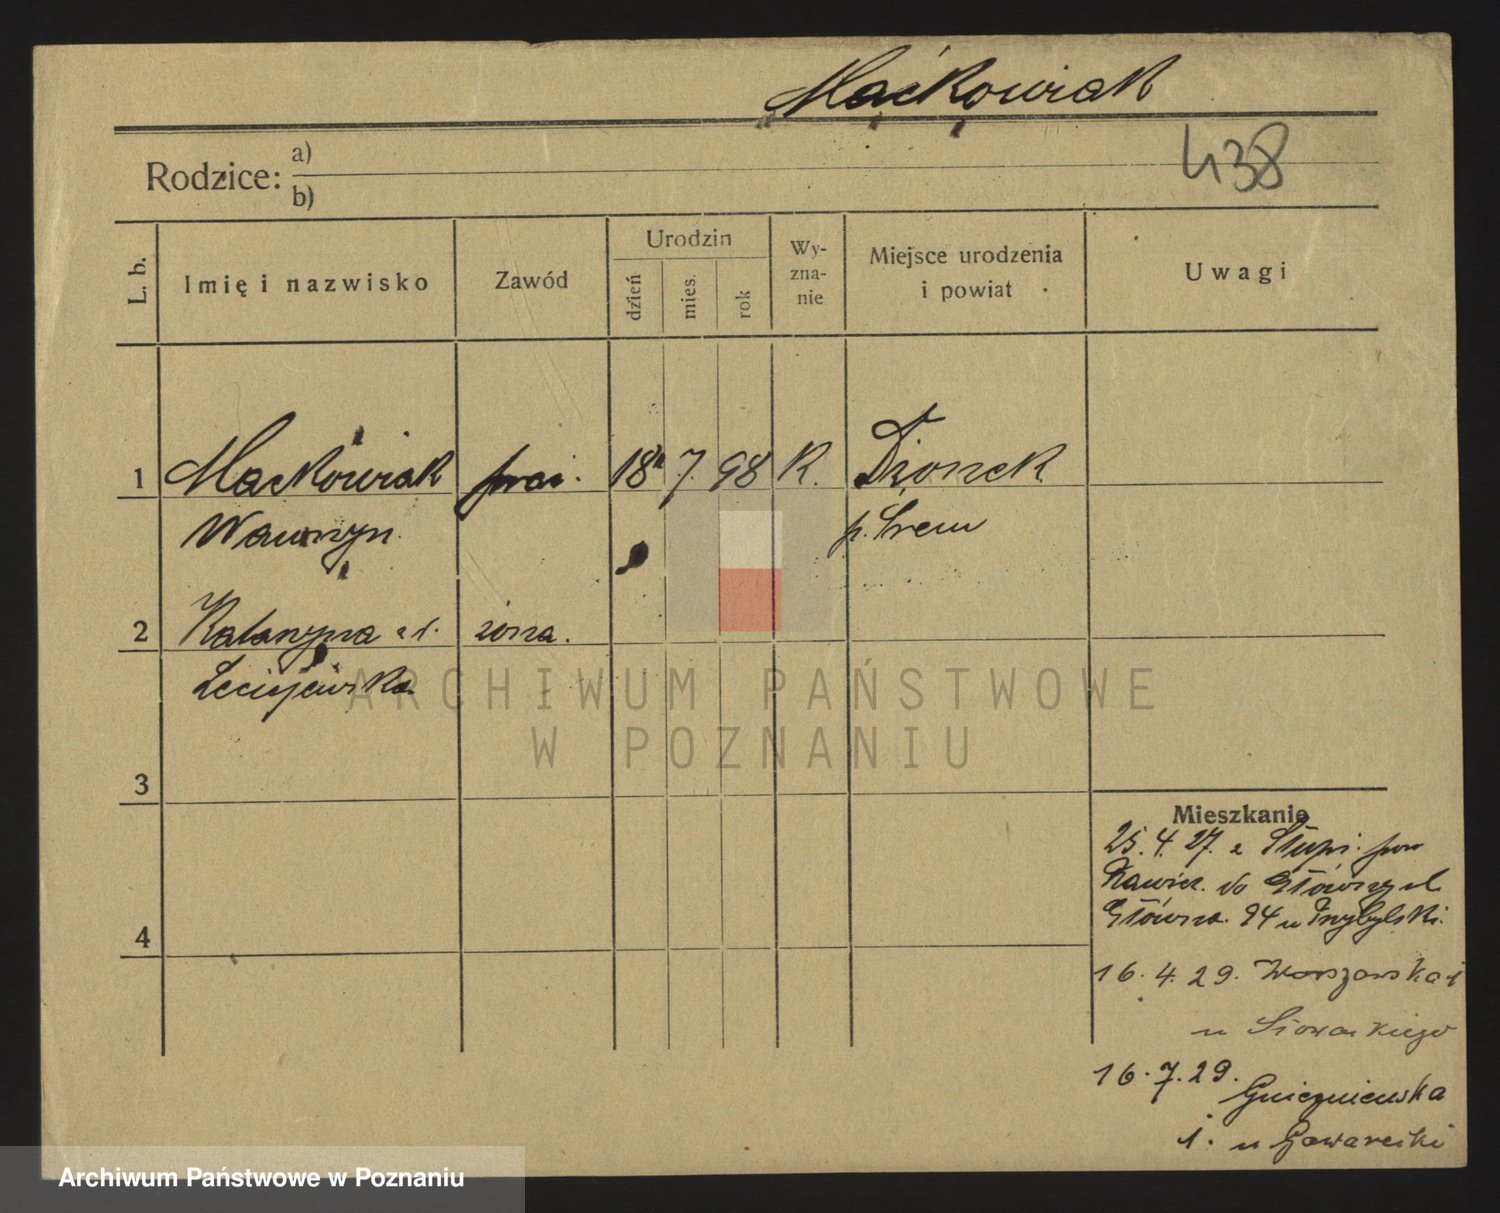 Maćkowiak
438
Rodzice: a)
b)
L. b.
Imię i nazwisko
Zawód
Urodzin
dzień
mies.
rok
Wy-
zna-
nie
Miejsce urodzenia
i powiat
Uwagi
1 Maćkowiak prac. 18 7. 98 K. Dzonek
Wawrzyn p. Śrem
2 Katarzyna z d. żona.
Leciejewska
ARCHIWUM PAŃSTWOWE
W POZNANIU
3
4
Mieszkanie
25. 4. 27. z Słupi pow
Rawicz. do Główny ul
Główna. 94 u Przybylski.
16. 4. 29. Warszawska 1
u Słowackiego
16. 7. 29.
Gnieźnieńska
1. u Gawarecki
Archiwum Państwowe w Poznaniu